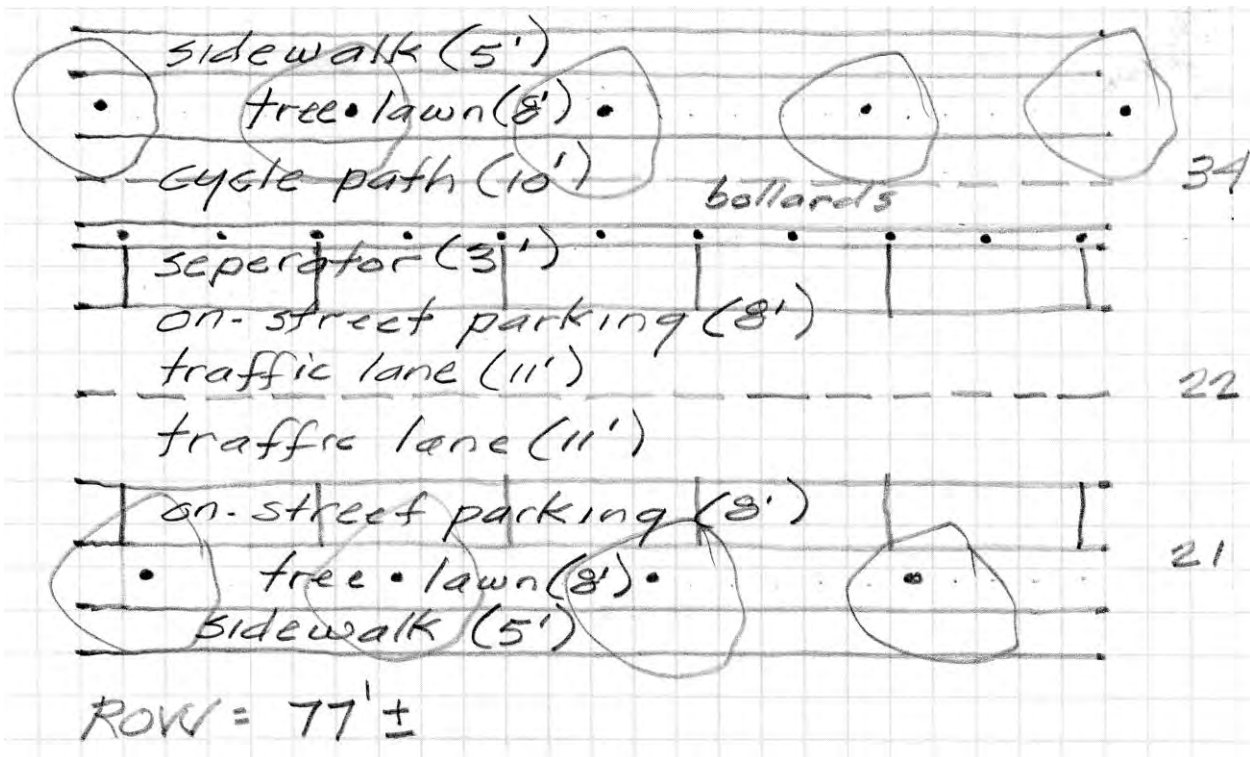 sidewalk (5')
tree lawn (8')
cycle path (10')
34
bollards
seperator (3')
on-street parking (8')
traffic lane (11')
22
traffic lane (11')
on-street parking (8')
tree lawn (8')
21
sidewalk (5')
ROW = 77' ±